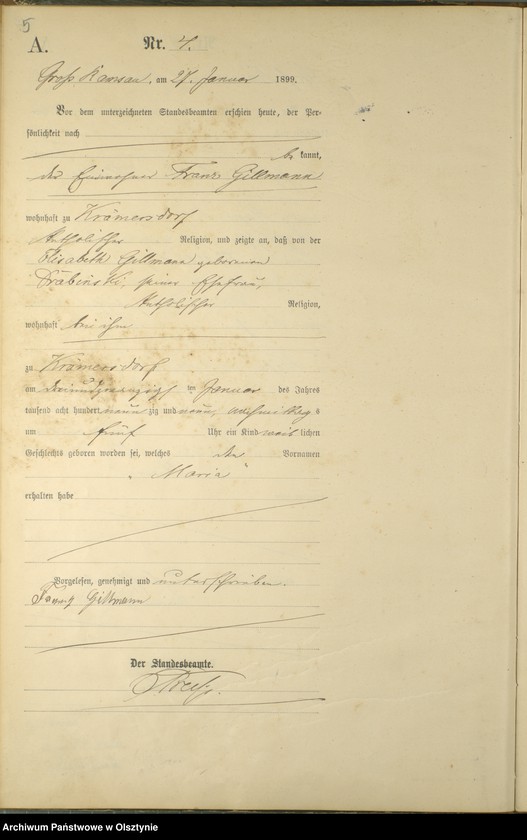 5
A.
Nr. 4.
am 27. Januar 1899.
Vor dem unterzeichneten Standesbeamten erschien heute, der Per-
sönlichkeit nach
be kannt,
der Einwohner Franz Gillmann
wohnhaft zu Krämersdorf
katholischer Religion, und zeigte an, daß von der
Elisabeth Gillmann geborenen
seiner Ehefrau,
katholischer Religion,
wohnhaft bei ihm
zu Krämersdorf
am dreiundzwanzigsten Januar des Jahres
tausend acht hundert neun zig und neun, nachmittag s
um fünf Uhr ein Kind weib lichen
Geschlechts geboren worden sei, welches den Vornamen
„Maria“
erhalten habe
Vorgelesen, genehmigt und unterschrieben.
Franz Gillmann
Der Standesbeamte.
Archiwum Państwowe w Olsztynie